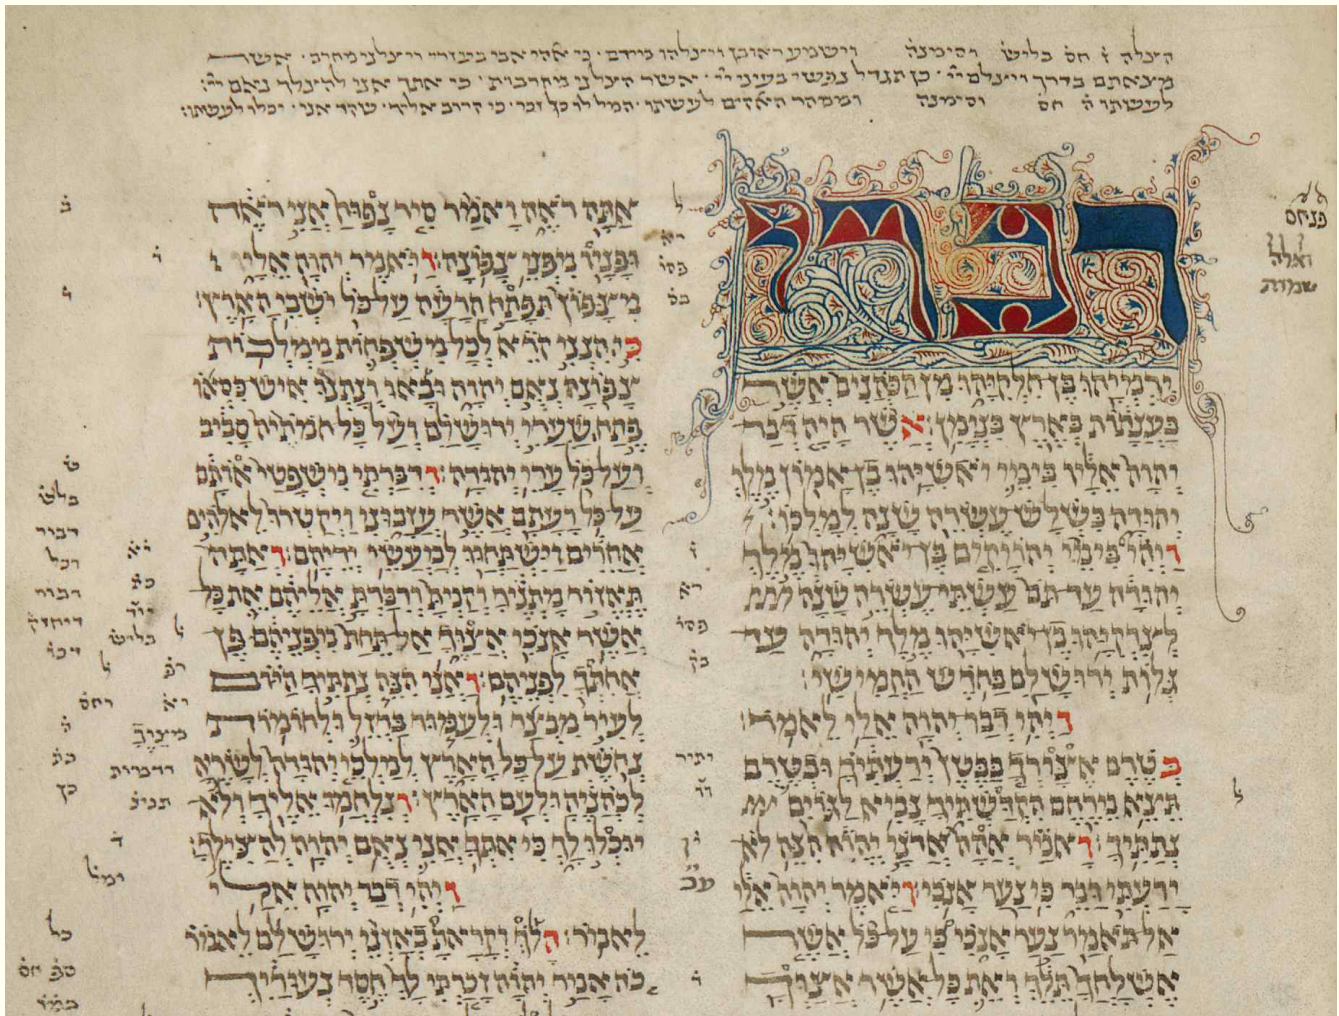 הצלה ז חס בליש וסימנה וישמע ראובן ויצלהו מידם · כי אלהי אבי בעזרי ויצלני מחרב · אשר
מצאתם בדרך ויצלם יי · כן תגדל נפשי בעיני יי · אשר הצלני מחריבות · כי אתך אני להצלך נאם יי:
לעשתו ה חס וסימנה וממהר האלהים לעשתו · המל לו כל זכר · כי קרוב אליך · שקד אני · יכלו לעשתו:
דִּבְרֵי
יִרְמְיָהוּ בֶּן חִלְקִיָּהוּ מִן הַכֹּהֲנִים אֲשֶׁר
בַּעֲנָתוֹת בְּאֶרֶץ בִּנְיָמִן: אֲשֶׁר הָיָה דְבַר
יְהוָה אֵלָיו בִּימֵי יֹאשִׁיָּהוּ בֶן אָמוֹן מֶלֶךְ
יְהוּדָה בִּשְׁלֹשׁ עֶשְׂרֵה שָׁנָה לְמָלְכוֹ:
וַיְהִי בִּימֵי יְהוֹיָקִים בֶּן יֹאשִׁיָּהוּ מֶלֶךְ
יְהוּדָה עַד תֹּם עַשְׁתֵּי עֶשְׂרֵה שָׁנָה
לְצִדְקִיָּהוּ בֶן יֹאשִׁיָּהוּ מֶלֶךְ יְהוּדָה עַד
גְּלוֹת יְרוּשָׁלִַם בַּחֹדֶשׁ הַחֲמִישִׁי:
וַיְהִי דְבַר יְהוָה אֵלַי לֵאמֹר:
בְּטֶרֶם אֶצּוֹרְךָ בַבֶּטֶן יְדַעְתִּיךָ וּבְטֶרֶם
תֵּצֵא מֵרֶחֶם הִקְדַּשְׁתִּיךָ נָבִיא לַגּוֹיִם
נְתַתִּיךָ: וָאֹמַר אֲהָהּ אֲדֹנָי יֱהוִה הִנֵּה לֹא
יָדַעְתִּי דַּבֵּר כִּי נַעַר אָנֹכִי: וַיֹּאמֶר יְהוָה אֵלַי
אַל תֹּאמַר נַעַר אָנֹכִי כִּי עַל כָּל אֲשֶׁר
אֶשְׁלָחֲךָ תֵּלֵךְ וְאֵת כָּל אֲשֶׁר אֲצַוְּךָ
אַתָּה רֹאֶה וָאֹמַר סִיר נָפוּחַ אֲנִי רֹאֶה
וּפָנָיו מִפְּנֵי צָפוֹנָה: וַיֹּאמֶר יְהוָה אֵלָי
מִצָּפוֹן תִּפָּתַח הָרָעָה עַל כָּל יֹשְׁבֵי הָאָרֶץ:
כִּי הִנְנִי קֹרֵא לְכָל מִשְׁפְּחוֹת מַמְלְכוֹת
צָפוֹנָה נְאֻם יְהוָה וּבָאוּ וְנָתְנוּ אִישׁ כִּסְאוֹ
פֶּתַח שַׁעֲרֵי יְרוּשָׁלִַם וְעַל כָּל חוֹמֹתֶיהָ סָבִיב
וְעַל כָּל עָרֵי יְהוּדָה: וְדִבַּרְתִּי מִשְׁפָּטַי אוֹתָם
עַל כָּל רָעָתָם אֲשֶׁר עֲזָבוּנִי וַיְקַטְּרוּ לֵאלֹהִים
אֲחֵרִים וַיִּשְׁתַּחֲווּ לְמַעֲשֵׂי יְדֵיהֶם: וְאַתָּה
תֶּאְזֹר מָתְנֶיךָ וְקַמְתָּ וְדִבַּרְתָּ אֲלֵיהֶם אֵת כָּל
אֲשֶׁר אָנֹכִי אֲצַוֶּךָּ אַל תֵּחַת מִפְּנֵיהֶם פֶּן
אֲחִתְּךָ לִפְנֵיהֶם: וַאֲנִי הִנֵּה נְתַתִּיךָ הַיּוֹם
לְעִיר מִבְצָר וּלְעַמּוּד בַּרְזֶל וּלְחֹמוֹת
נְחֹשֶׁת עַל כָּל הָאָרֶץ לְמַלְכֵי יְהוּדָה לְשָׂרֶיהָ
לְכֹהֲנֶיהָ וּלְעַם הָאָרֶץ: וְנִלְחֲמוּ אֵלֶיךָ וְלֹא
יוּכְלוּ לָךְ כִּי אִתְּךָ אֲנִי נְאֻם יְהוָה לְהַצִּילֶךָ:
וַיְהִי דְבַר יְהוָה אֵלַי
לֵאמֹר: הָלֹךְ וְקָרָאתָ בְאָזְנֵי יְרוּשָׁלִַם לֵאמֹר
כֹּה אָמַר יְהוָה זָכַרְתִּי לָךְ חֶסֶד נְעוּרַיִךְ
פנחס
ואלה
שמות